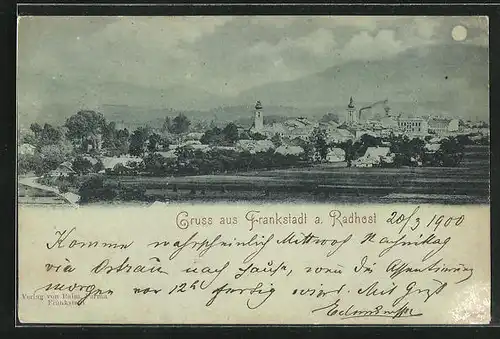 Gruss aus Frankstadt a. Radhost 20/3 1900
Komme wahrscheinlich Mittwoch Nachmittag
via Ostrau nach Hause, wenn die Assentierung
morgen vor 12h fertig wird. Mit Gruß
Verlag von Raim.
Frankstadt